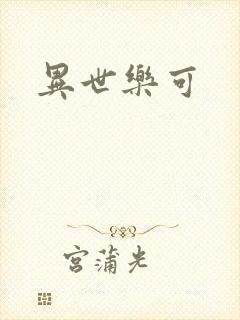 異世樂可
宮蒲光